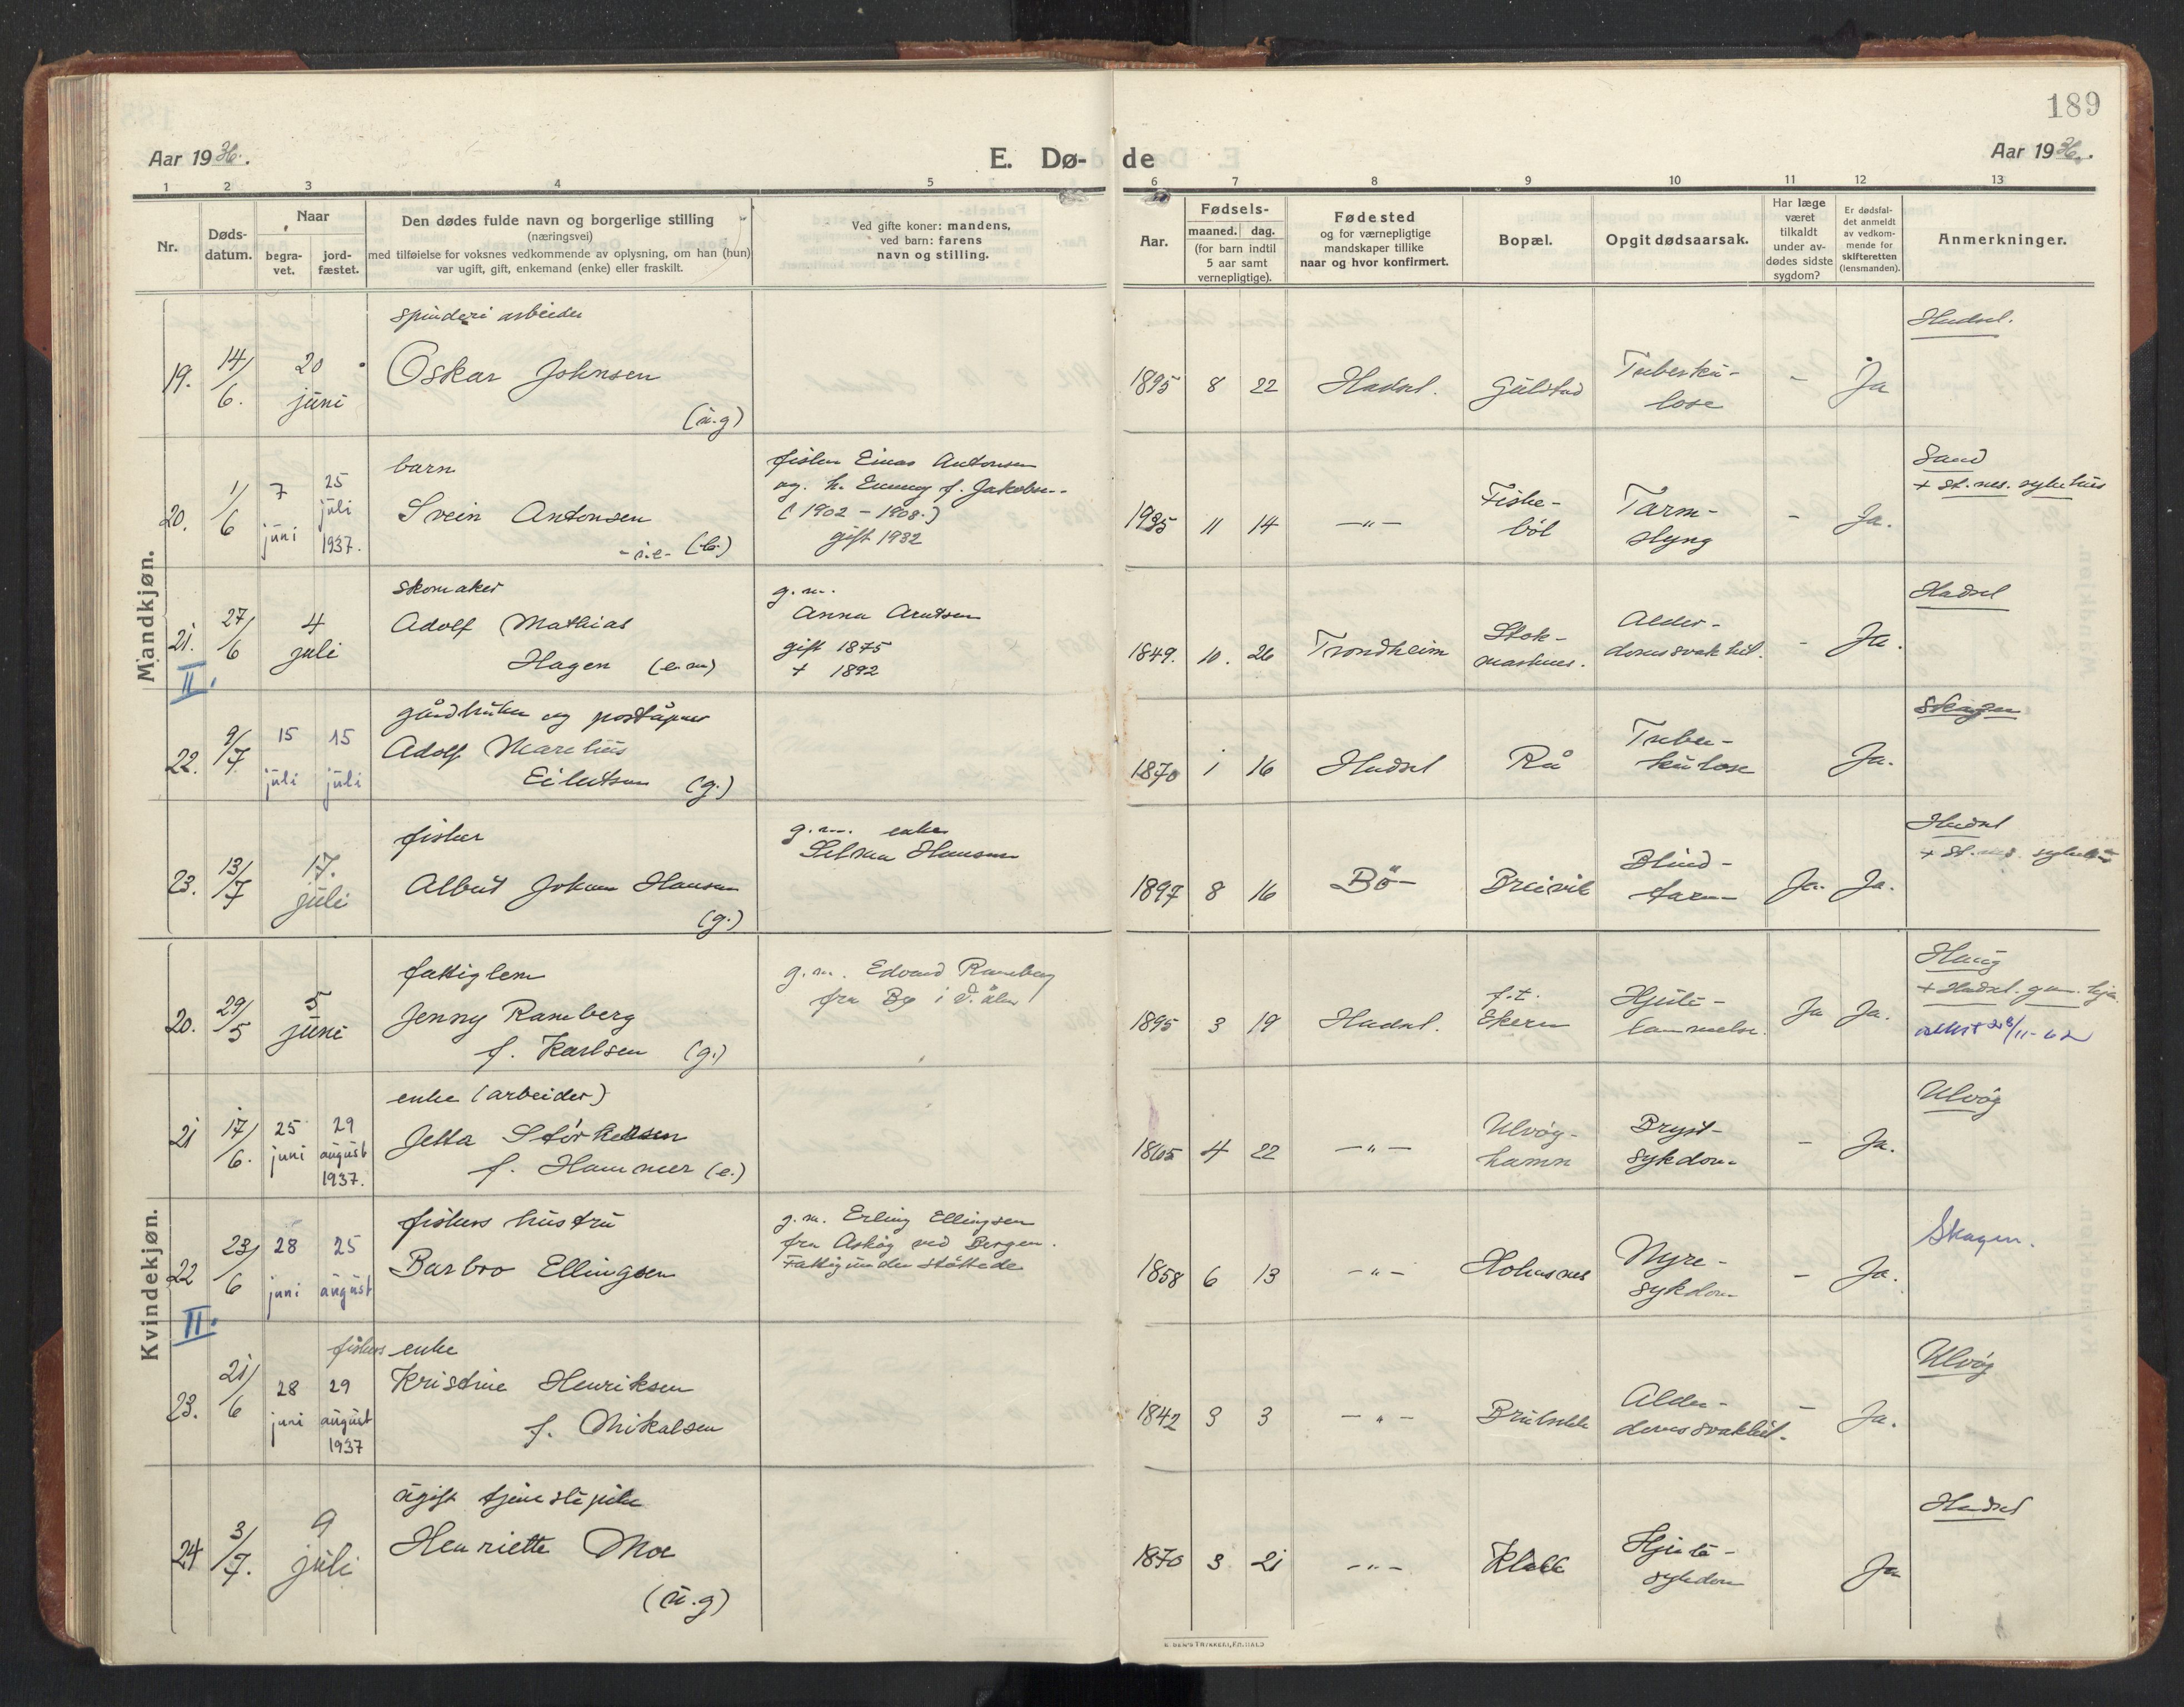 189
Aar 1936.
E. Dø-
de
Aar 1936.
1 2 3 4 5 6 7 8 9 10 11 12 13
Nr.
Døds-
datum.
Naar
begra-
vet.
jord-
fæstet.
Den dødes fulde navn og borgerlige stilling
(næringsvei)
med tilføielse for voksnes vedkommende av oplysning, om han (hun)
var ugift, gift, enkemand (enke) eller fraskilt.
Ved gifte koner: mandens,
ved barn: farens
navn og stilling.
Aar.
Fødsels-
maaned. dag.
(for barn indtil
5 aar samt
vernepligtige).
Fødested
og for værnepligtige
mandskaper tillike
naar og hvor konfirmert.
Bopæl.
Opgit dødsaarsak.
Har læge
været
tilkaldt
under av-
dødes sidste
sygdom?
Er dødsfal-
det anmeldt
av vedkom-
mende for
skifteretten
(lensmanden).
Anmerkninger.
Mandkjøn.
spinderi arbeider
Hadsel.
19. 14/6. 20 juni
Oskar Johnsen
(u.g)
1895 8 22 Hadsel. Guldstad Tuberku-
lose
- Ja
barn
fisker Einar Antonsen
og h. Emmy f. Jakobsen
(1902 - 1908.)
gift 1932
Sand
+ st.nes. sykehus
20. 1/6 7 juni 25 juli 1937.
Svein Antonsen
1935 11 14 -"- Fiske-
böl
Tarm-
slyng
- Ja.
skomaker
g.m.
Anna Arntsen
gift 1875
+ 1892
Hadsel
21. 27/6 4 juli
Adolf Mathias
Hagen (e.m)
1849. 10. 26 Trondheim Stok-
marknes.
Alder-
domssvakhet.
- Ja.
II.
gårdbruker og poståpner
Skagen
22. 9/7 15 juli 15 juli
Adolf Marelius
Eilertsen (g.)
1870 1 16 Hadsel Rå Tuber-
kulose
Ja.
fisker
g.m. enke
Selma Hansen
Hadsel
+ St.nes. sykehus
23. 13/7 17. juli
Albert Johan Hansen
(g.)
1897 8 16 Bö- Breivik Blind-
tarm
Ja. Ja.
Kvindekjøn.
fattiglem
g.m. Edvard Ramberg
fra Bø i V.ålen
Haug
+ Hadsel. gam. hjem
20. 29/5 5 juni
Jenny Ramberg
f. Karlsen (g.)
1895 3 19 Hadsel. f.t.
Ekern
Hjerte-
lammelse.
Ja Ja.
attest 28/11-62
enke (arbeider)
Ulvøy
21 17/6. 25 juni 29 august 1937.
Jetta Størkersen
f. Hammer (e.)
1865 4 22 -"- Ulvøy-
hamn
Bryst-
sykdom
- Ja.
fiskers hustru
g.m. Erling Ellingsen
fra Askøy ved Bergen.
Fattigunderstøttede
Skagen.
22 23/6 28 juni 25 august
Barbro Ellingsen
1858 6 13 -"- Holmsnes Nyre-
sykdom
- Ja.
II.
fiskers enke
Ulvøy
23. 21/6 28 juni 29 august 1937
Kristine Henriksen
f. Mikalsen
1842 3 3 -"- Alder-
domssvakhet.
- Ja.
ugift tjenestepike
Hadsel
24 3/7. 9 juli
Henriette Moe
(u.g)
1870 3 21 -"- Hjerte-
sykdom
Ja